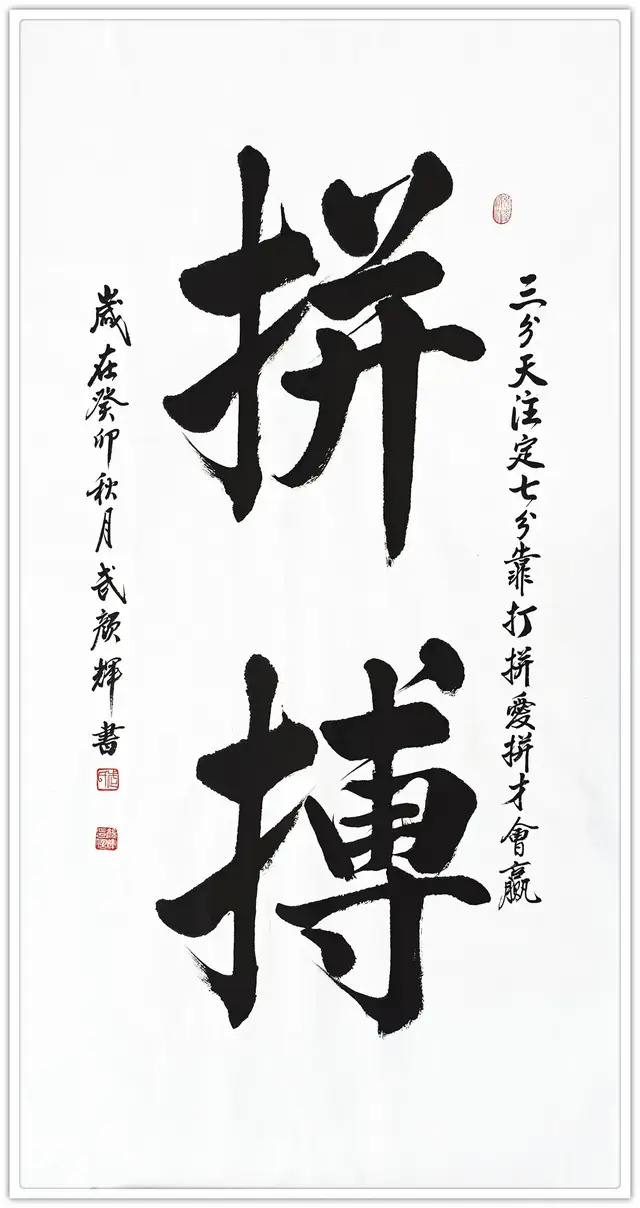 三分天注定七分靠打拼愛拼才會赢
拼搏
歲在癸卯秋月武顏輝書